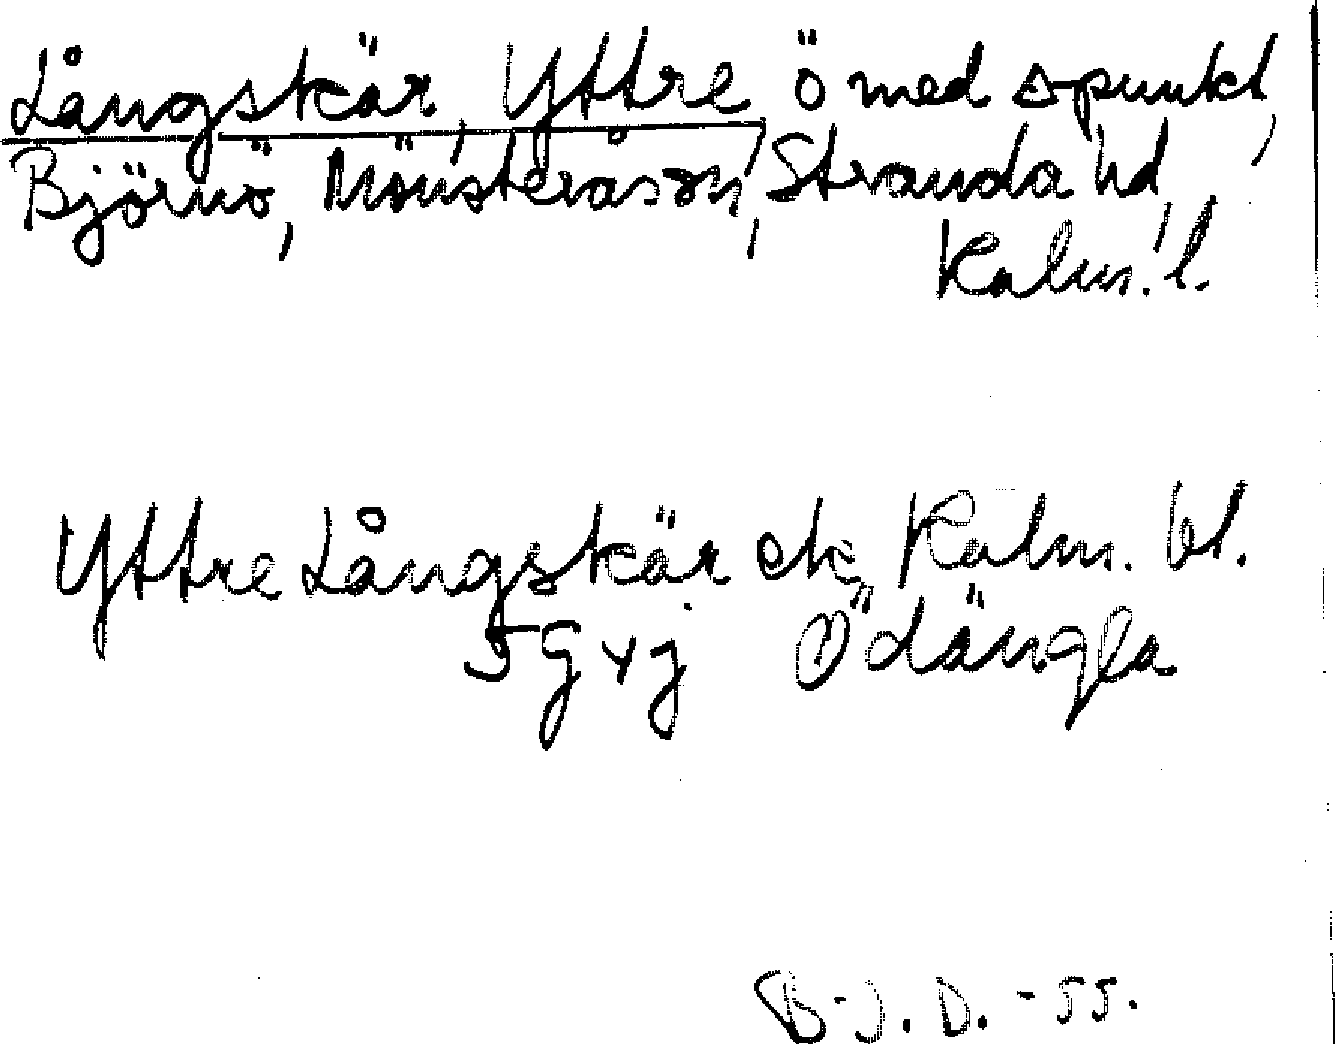 Långskär, Yttre, ö med spunkt,
Björnö, Mönsterås sn, Stranda hd,
Kalm. l.
Yttre Långskär ek Kalm. bl.
5 g y j Ödängla
B-J. D. -55.